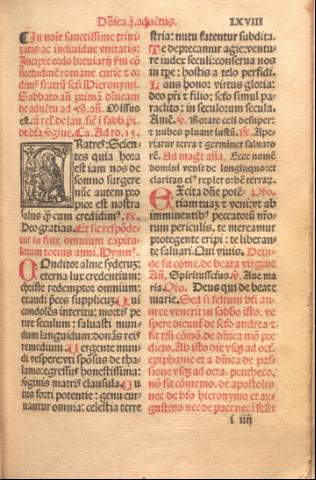 Dñica.j. aduẽtus. LXVIII
In noĩe sanctissime trini
tatis ac indiuidue vnitatis:
Incipit ordo breuiarij s̃m cõ
suetudinẽ romane curie z or
dinis fratrũ sc̃ti Hieronymi.
Sabbato añ primã dñicam
de aduẽtu ad v̓as. añ. Missus
est. ũ rel̃. de lau. sic ĩ sabb. p̃.
de bt̃a v̓gine. Ca. Ad ro. 13.
FRatres: Scien
tes quia hora
est iam nos de
somno surgere
nũc autem pro
pior est nostra
salus q̃ cum credidim⁹. ℟.
Deo gratias. Et sic respõde
tur in fine omnium capitu
lorum totius anni. Hymn⁹.
COnditor alme syderuz:
eterna lux credentium:
christe redemptor omnium:
exaudi p̃ces supplicuz. Qui
condolẽs interitu: mortis pe
rire seculum: saluasti mun
dum languidum: donãs reis
remedium. Uergente mun
di vespere: vti spõsus de tha
lamo: egressus honestissima:
v̓ginis matris clausula. Cu
ius forti potentie: genu cur
uantur omnia: celestia terre
stria: nutu fatentur subdita.
Te deprecamur agie: ventu
re iudex seculi: conserua nos
in tp̃e: hostis a telo perfidi.
Laus honor virtus gloria:
deo pr̃i z filio: sc̃to simul pa
raclito: in seculorum secula
Amẽ. ℣. Rorate celi desuper:
z nubes pluant iustũ. ℟. Ape
riatur terra z germinet saluato
rẽ. Ad mag̃t añ. Ecce nomẽ
domini veni de longinquo: et
claritas ei⁹ replet orbẽ terraꝝ.
EXcita dñe potẽ Oro.
tiam tuaz z veni: vt ab
imminentib⁹ peccatorũ nr̃o
rum periculis. te mereamur
protegente eripi: te liberan
te saluari. Qui viuis. Dein
de fit cõme. de beata virgine
Añ. Spiritussctus. ℣. Aue ma
ria. Oro. Deus qui de beate
marie. Sed si festum bt̃i an
dree venerit in sabbo isto: ve
spere dicunt̃ de sc̃to andrea z
fit tm̃ cõmõ. de dñica mõ pre
dicto. Ab isto die vsqz ad oct.
epiphanie et a dñica de pas
sione vsqz ad octa. penthecõ.
nõ fit cõmemo. de apostolis
nec de bt̃o hieronymo et au
gustino nec de pace nec ĩ festi
i iiij